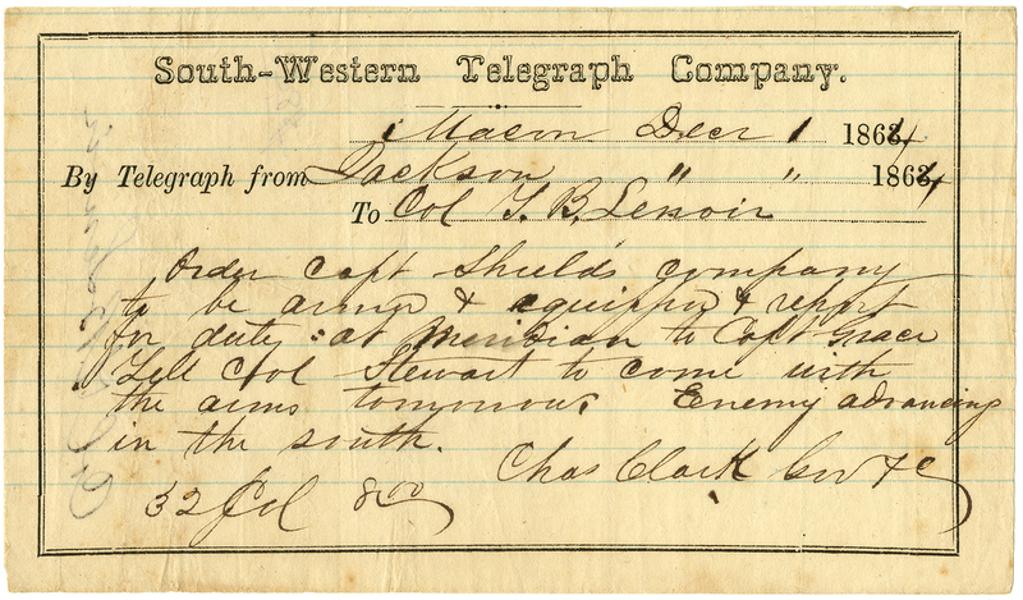 South-Western Telegraph Company.
Macon Decr 1 1864
By Telegraph from Jackson " " 1864
To Col T. B. Lenoir
Order Capt Shields company
to be armed & equipped & report
for duty at Meridian to Capt Grace
Tell Col Stewart to come with
the arms tomorrow. Enemy advancing
in the south.
Chas Clark Gov &c
32 Col 8 00